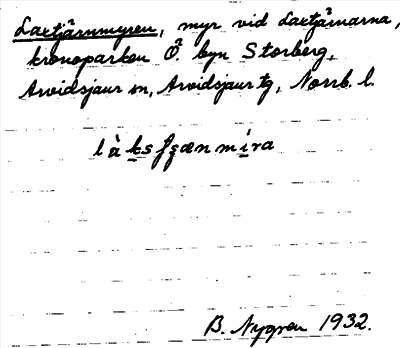 Laxtjärnmyren, myr vid Laxtjärnarna,
kronoparken Ö. byn Storberg,
Arvidsjaur sn, Arvidsjaur tg, Norrb. l.
B. Nygren 1932.